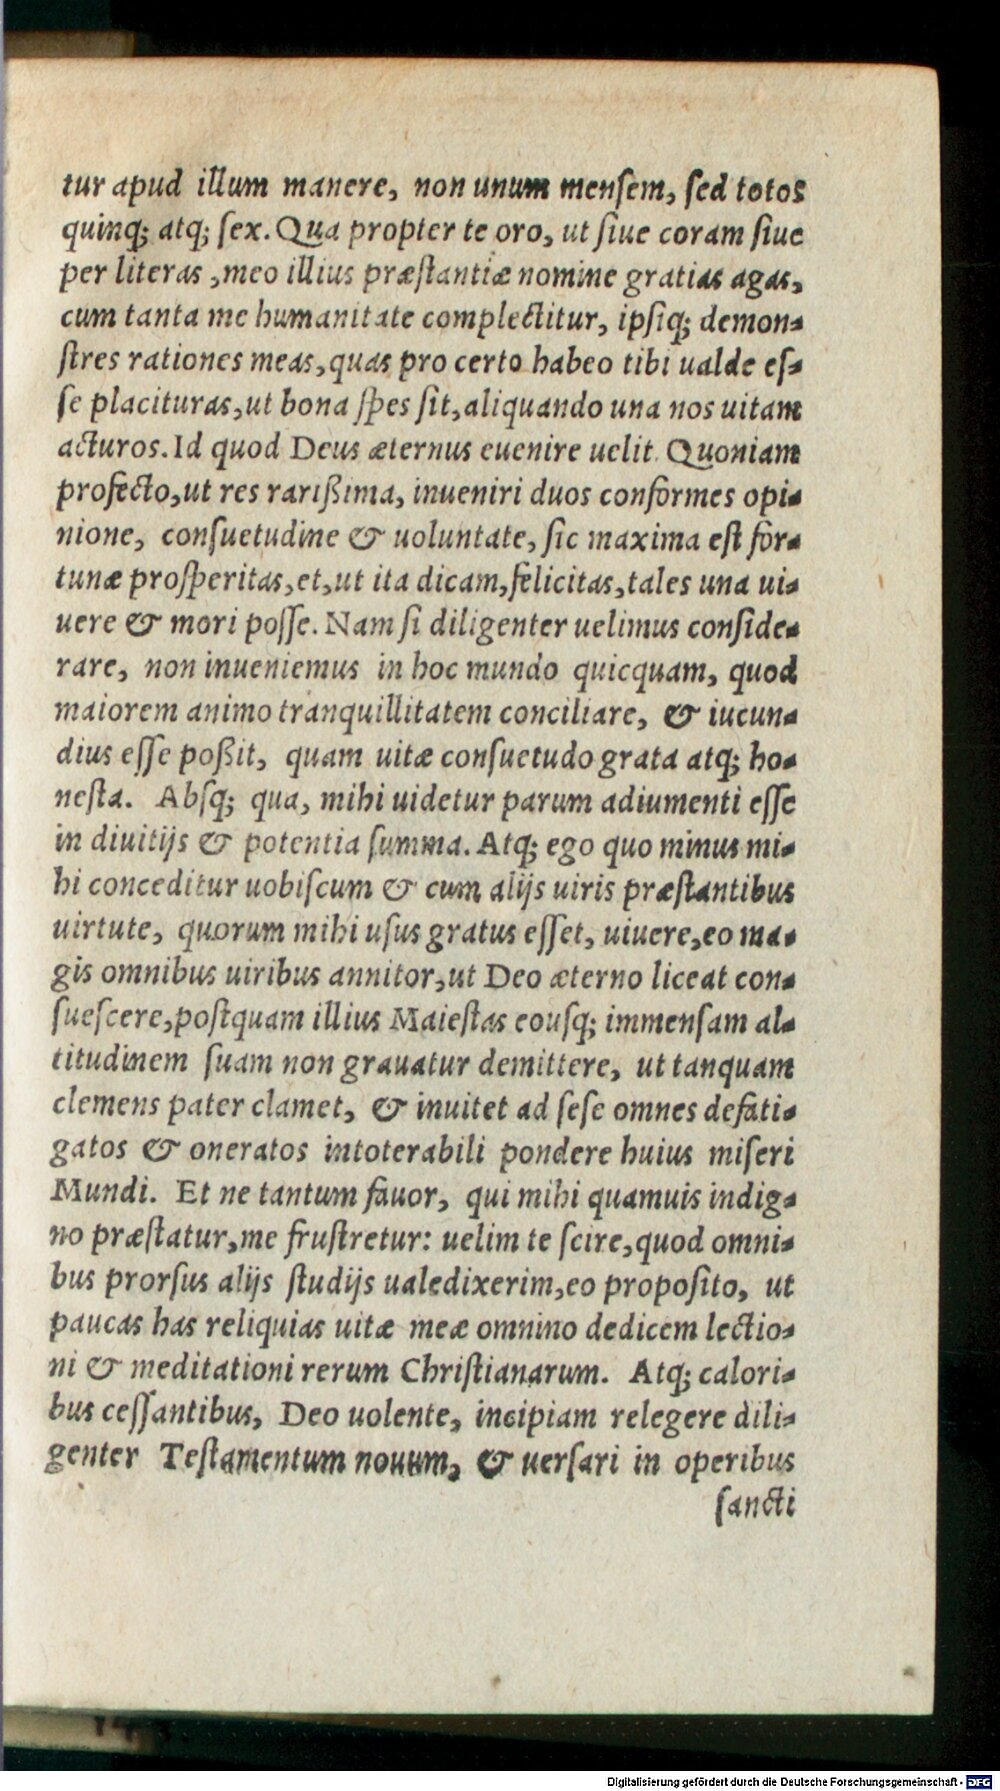 tur apud illum manere, non unum mensem, sed totos
quinq; atq; sex. Qua propter te oro, ut siue coram siue
per literas, meo illius præstantiæ nomine gratias agas,
cum tanta me humanitate complectitur, ipsiq; demon-
stres rationes meas, quas pro certo habeo tibi ualde es-
se placituras, ut bona spes sit, aliquando una nos uitam
acturos. Id quod Deus æternus euenire uelit. Quoniam
profecto, ut res rarißima, inueniri duos conformes opi-
nione, consuetudine & uoluntate, sic maxima est for-
tunæ prosperitas, et, ut ita dicam, felicitas, tales una ui-
uere & mori posse. Nam si diligenter uelimus conside-
rare, non inueniemus in hoc mundo quicquam, quod
maiorem animo tranquillitatem conciliare, & iucun-
dius esse poßit, quam uitæ consuetudo grata atq; ho-
nesta. Absq; qua, mihi uidetur parum adiumenti esse
in diuitijs & potentia summa. Atq; ego quo minus mi-
hi conceditur uobiscum & cum alijs uiris præstantibus
uirtute, quorum mihi usus gratus esset, uiuere, eo ma-
gis omnibus uiribus annitor, ut Deo æterno liceat con-
suescere, postquam illius Maiestas eousq; immensam al-
titudinem suam non grauatur demittere, ut tanquam
clemens pater clamet, & inuitet ad sese omnes defati-
gatos & oneratos intoterabili pondere huius miseri
Mundi. Et ne tantum fauor, qui mihi quamuis indig-
no præstatur, me frustretur: uelim te scire, quod omni-
bus prorsus alijs studijs ualedixerim, eo proposito, ut
paucas has reliquias uitæ meæ omnino dedicem lectio-
ni & meditationi rerum Christianarum. Atq; calori-
bus cessantibus, Deo uolente, incipiam relegere dili-
genter Testamentum nouum, & uersari in operibus
sancti
Digitalisierung gefördert durch die Deutsche Forschungsgemeinschaft - DFG